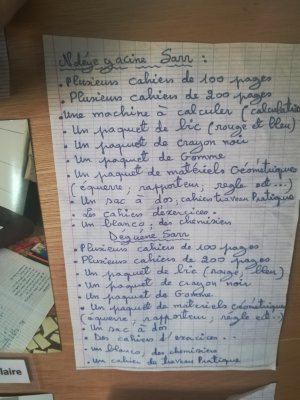 Ndéye yacine Sarr :
. Plusieurs cahiers de 100 pages
. Plusieurs cahiers de 200 pages
. Une machine à calculer (calculatrice
. Un paquet de bic (rouge et bleu)
. Un paquet de crayon noir
. Un paquet de Gomme
. Un paquet de matériels Géométriques
(équerre, rapporteur, règle ect...)
. Un sac à dos, cahier travaux Pratique
. Les cahiers d'exercices.
. Un blanco, des chemisiers
Deguène Sarr
. Plusieurs cahiers de 100 pages
. Plusieurs cahiers de 200 pages
. Un paquet de bic (rouge, bleu)
. Un paquet de crayon noir
. Un paquet de Gomme.
. Un paquet de materiels Géométriques
(équerre, rapporteur, règle ect..)
. Un sac à dos
. Des cahiers d'exercices..
. un blanco, des chemisiers
. un cahier de travaux Pratique
laire